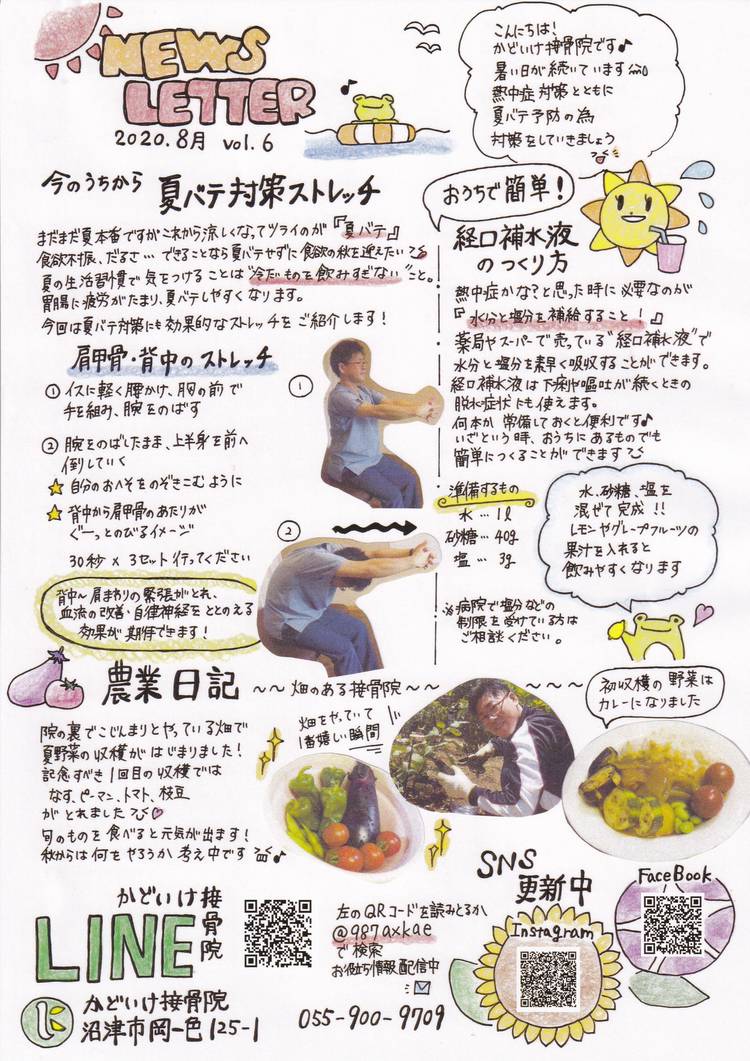 NEWS
LETTER
2020.8月 vol.6
こんにちは!
かどいけ接骨院です♪
暑い日が続いています
熱中症対策とともに
夏バテ予防の為
対策をしていきましょう
今のうちから 夏バテ対策ストレッチ
まだまだ夏本番ですがこれから涼しくなってツライのが『夏バテ』
食欲不振、だるさ… できることなら夏バテせずに食欲の秋を迎えたい
夏の生活習慣で気をつけることは"冷たいものを飲みすぎない"こと。
胃腸に疲労がたまり、夏バテしやすくなります。
今回は夏バテ対策にも効果的なストレッチをご紹介します!
肩甲骨・背中のストレッチ
① イスに軽く腰かけ、胸の前で
手を組み、腕をのばす
② 腕をのばしたまま、上半身を前へ
倒していく
☆ 自分のおへそをのぞきこむように
☆ 背中から肩甲骨のあたりが
ぐーっとのびるイメージ
30秒 × 3セット行ってください
背中〜肩まわりの緊張がとれ、
血流の改善・自律神経をととのえる
効果が期待できます!
①
②
おうちで簡単!
経口補水液
のつくり方
熱中症かな?と思った時に必要なのが
『水分と塩分を補給すること!』
薬局やスーパーで売っている"経口補水液"で
水分と塩分を素早く吸収することができます。
経口補水液は下痢や嘔吐が続くときの
脱水症状にも使えます。
何本か常備しておくと便利です♪
いざという時、おうちにあるものでも
簡単につくることができます
準備するもの
水 … 1ℓ
砂糖 … 40g
塩 … 3g
※病院で塩分などの
制限を受けている方は
ご相談ください。
水、砂糖、塩を
混ぜて完成!!
レモンやグレープフルーツの
果汁を入れると
飲みやすくなります
農業日記 〜〜畑のある接骨院〜〜 〜〜〜
院の裏でこじんまりとやっている畑で
夏野菜の収穫がはじまりました!
記念すべき1回目の収穫では
なす、ピーマン、トマト、枝豆
がとれました
旬のものを食べると元気が出ます!
秋からは何をやろうか考え中です♪
畑をやっていて
1番嬉しい瞬間
初収穫の野菜は
カレーになりました
かどいけ接骨院
LINE
左のQRコードを読みとるか
@987axkae
で検索
お役立ち情報配信中
SNS
更新中
Instagram
FaceBook
かどいけ接骨院
沼津市岡一色125-1
055-900-9709